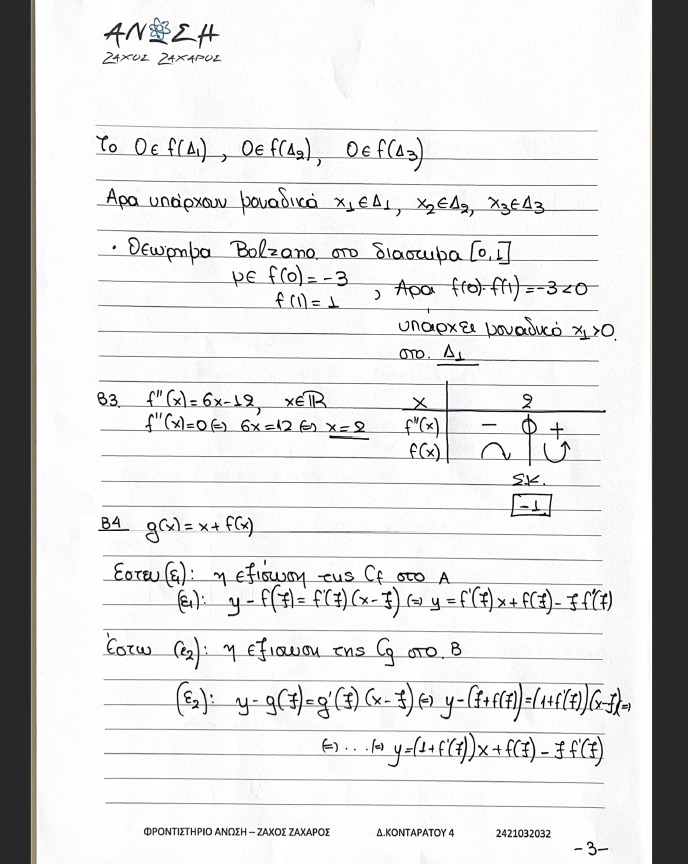 ΑΝΩΣΗ
ΖΑΧΟΣ ΖΑΧΑΡΟΣ
Το 0∈f(Δ1) , 0∈f(Δ2), 0∈f(Δ3)
Αρα υπάρχουν μοναδικά x1∈Δ1, x2∈Δ2, x3∈Δ3
• Θεώρημα Bolzano στο διάστημα [0,1]
με f(0)=-3
f(1)=1 , Αρα f(0)·f(1)=-3<0
υπάρχει μοναδικό x1>0
στο. Δ1
Β3. f''(x)=6x-12, x∈ℝ
f''(x)=0 ⇔ 6x=12 ⇔ x=2
x 2
f''(x) - 0 +
f(x)
Σ.Κ.
-1
Β4 g(x)=x+f(x)
Εστω (ε1): η εξίσωση της Cf στο Α
(ε1): y-f(ξ)=f'(ξ)(x-ξ) ⇔ y=f'(ξ)x+f(ξ)-ξf'(ξ)
Έστω (ε2): η εξισωση της Cg στο. Β
(ε2): y-g(ξ)=g'(ξ)(x-ξ) ⇔ y-(ξ+f(ξ))=(1+f'(ξ))(x-ξ) ⇔
⇔ ... ⇔ y=(1+f'(ξ))x+f(ξ)-ξf'(ξ)
ΦΡΟΝΤΙΣΤΗΡΙΟ ΑΝΩΣΗ – ΖΑΧΟΣ ΖΑΧΑΡΟΣ Δ.ΚΟΝΤΑΡΑΤΟΥ 4 2421032032
-3-